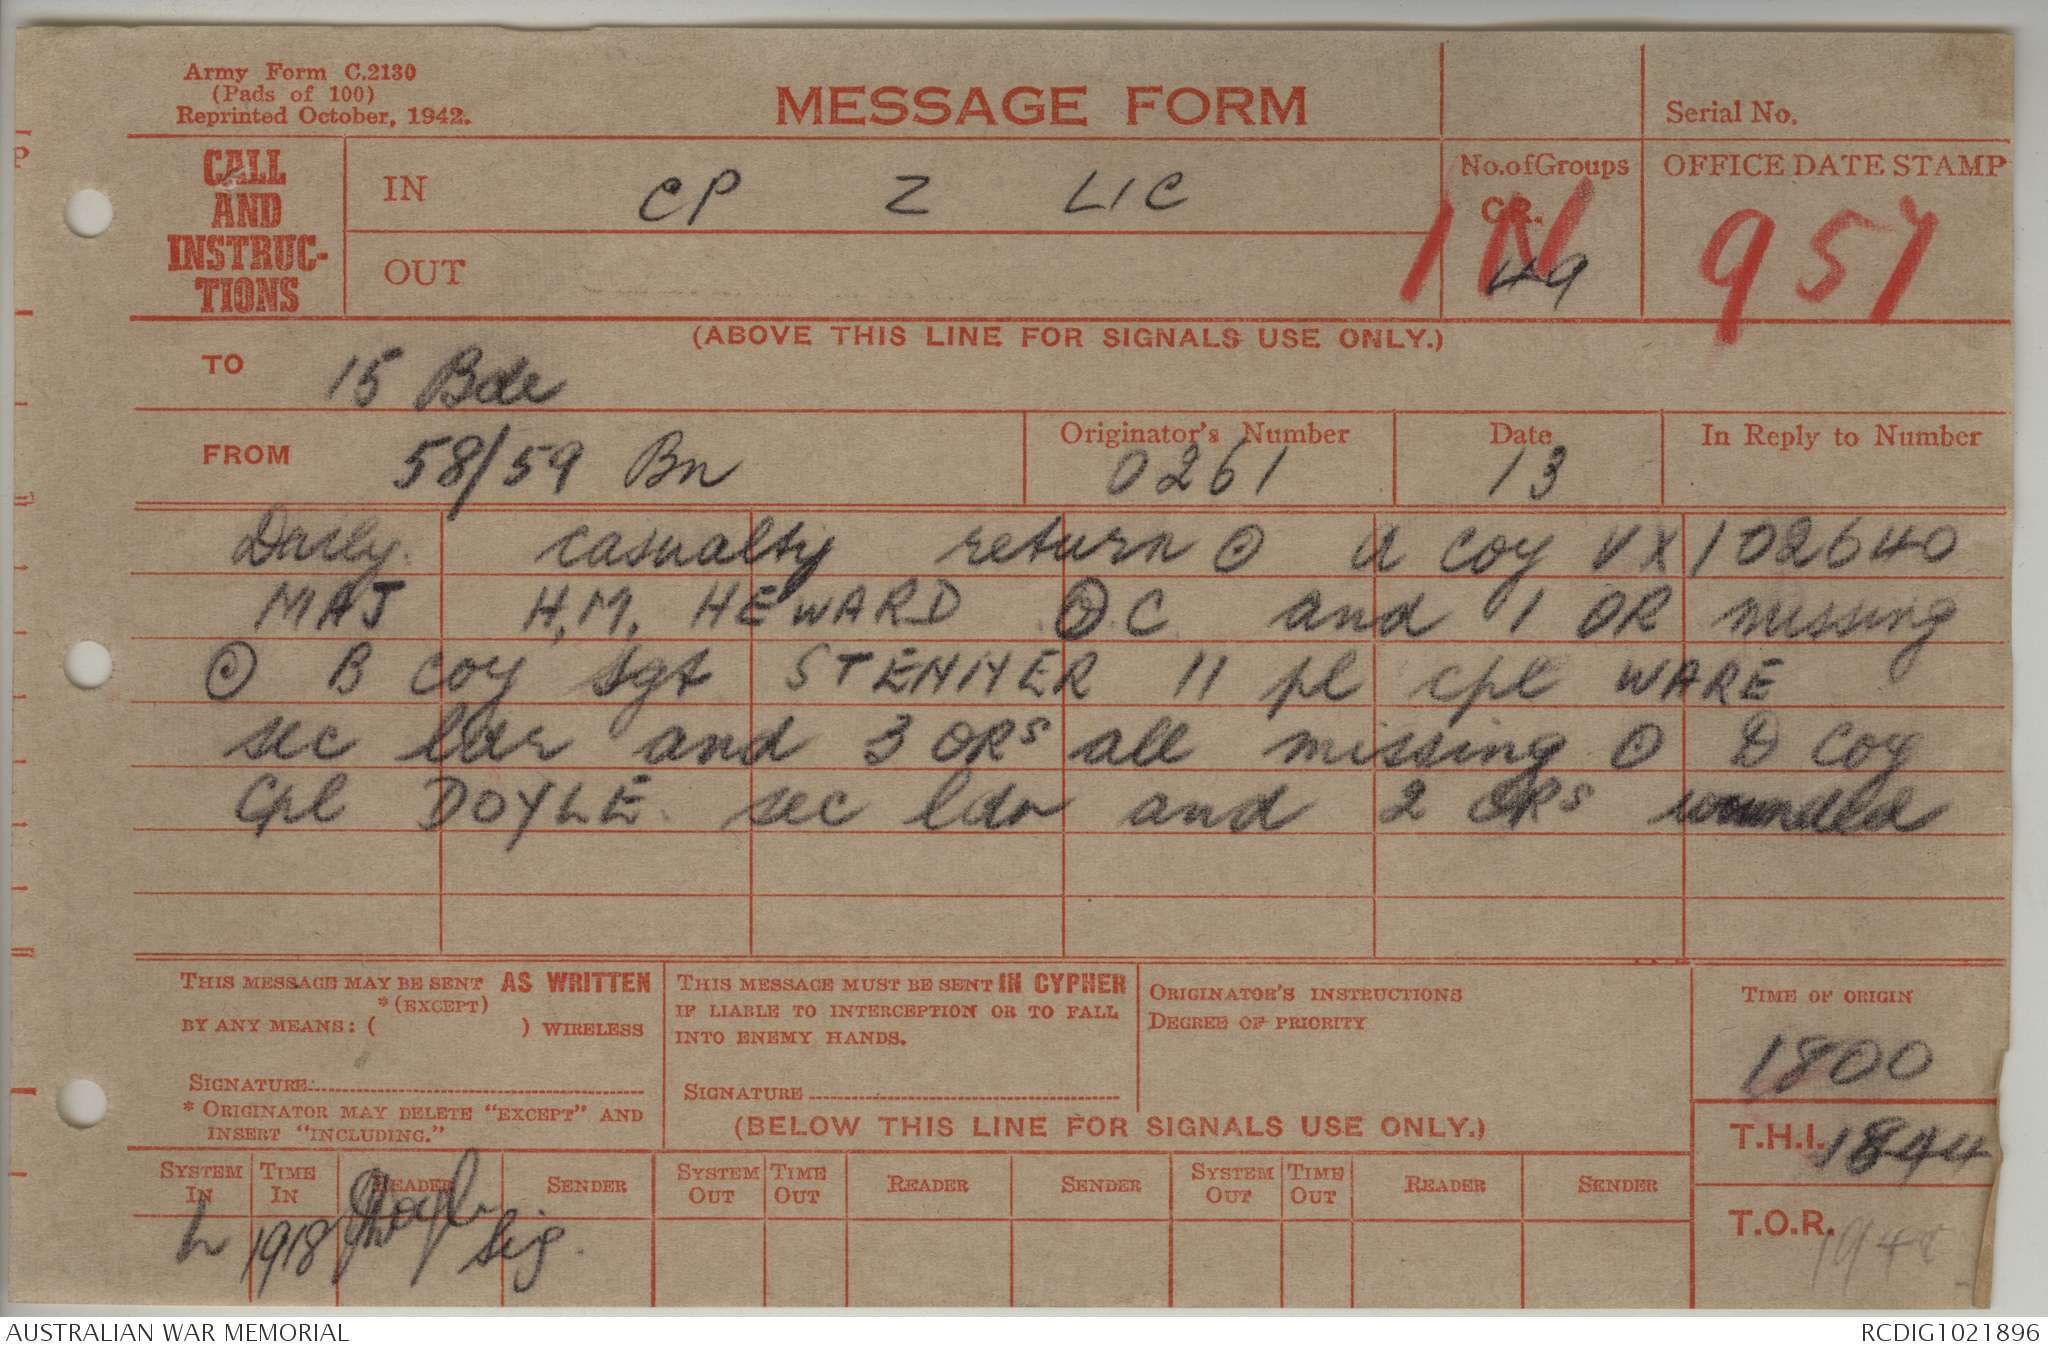 Army Form C.2130
(Pads of 100)
Reprinted October, 1942.
MESSAGE FORM
Serial No.
CALL
AND
INSTRUC-
TIONS
IN
CP Z LIC
No. of Groups
GR.
49
OFFICE DATE STAMP
IN 957
OUT
(ABOVE THIS LINE FOR SIGNALS USE ONLY.)
TO
15 Bde
FROM
58/59 Bn
Originator's Number
0261
Date
13
In Reply to Number
Daily casualty return ⊙ A Coy VX102640
MAJ H.M. HEWARD O.C and 1 OR missing
⊙ B Coy Sgt 11 pl cpl WARE
sec ldr and 3 ORs all missing ⊙ D Coy
Cpl DOYLE sec ldr and 2 ORs wounded
THIS MESSAGE MAY BE SENT AS WRITTEN
*(EXCEPT)
BY ANY MEANS: ( ) WIRELESS
SIGNATURE
* ORIGINATOR MAY DELETE "EXCEPT" AND
INSERT "INCLUDING."
THIS MESSAGE MUST BE SENT IN CYPHER
IF LIABLE TO INTERCEPTION OR TO FALL
INTO ENEMY HANDS.
SIGNATURE
ORIGINATOR'S INSTRUCTIONS
DEGREE OF PRIORITY
TIME OF ORIGIN
1800
(BELOW THIS LINE FOR SIGNALS USE ONLY.)
T.H.I. 1844
SYSTEM IN
TIME IN
READER
SENDER
SYSTEM OUT
TIME OUT
READER
SENDER
SYSTEM OUT
TIME OUT
READER
SENDER
T.O.R.
1918
Sig.
AUSTRALIAN WAR MEMORIAL
RCDIG1021896